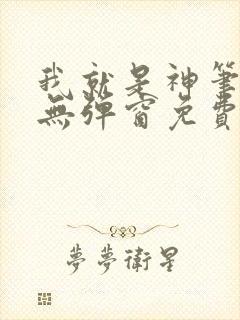 我就是神筆
無彈窗免費
夢夢衛星